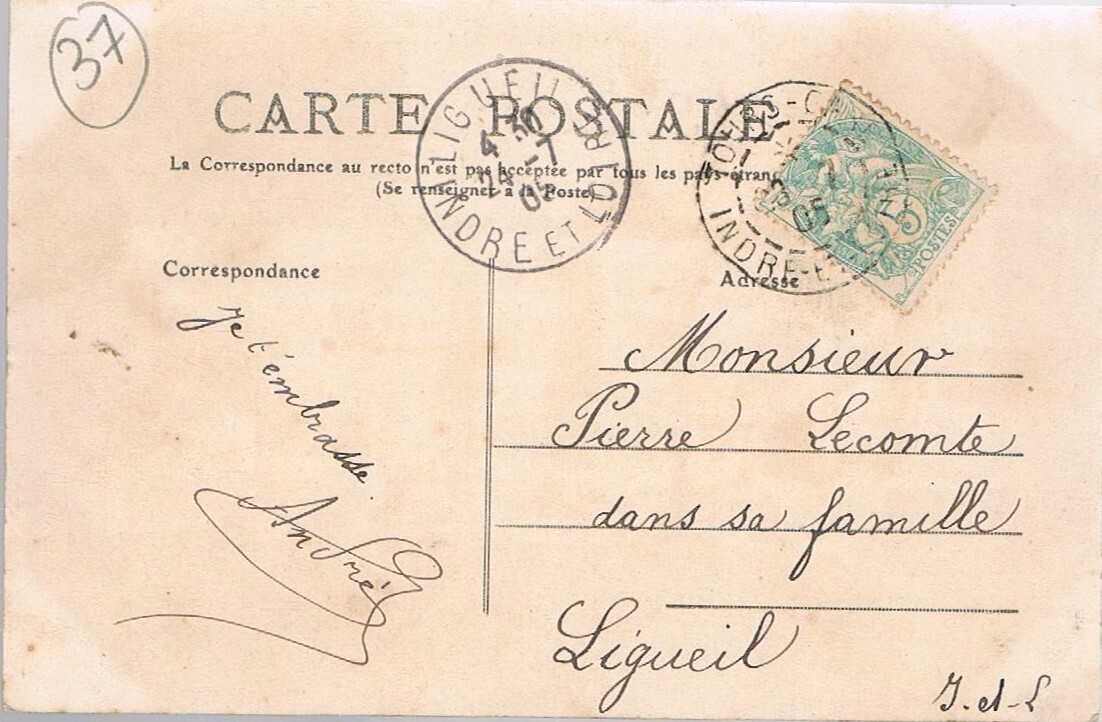 37
CARTE POSTALE
La Correspondance au recto n'est pas acceptée par tous les pays étrang
(Se renseigner à la Poste)
LIGUEIL
4 30
24 - 1
05
INDRE ET LOIRE
TOURS-
05
INDRE-E
5
POSTES
Correspondance
Adresse
Je t'embrasse.
André
Monsieur
Pierre Lecomte
dans sa famille
Ligueil
I.-et-L